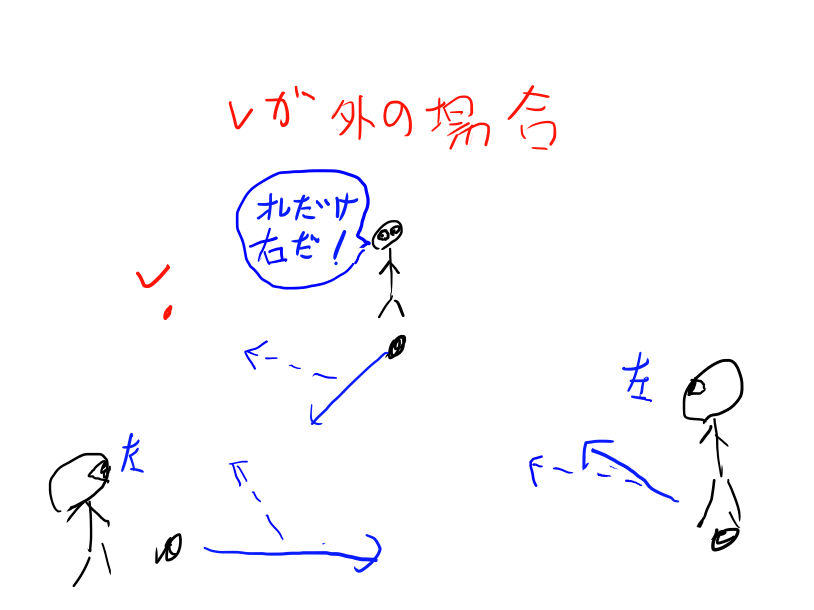 レが外の場合
オレだけ
右だ!
左
左